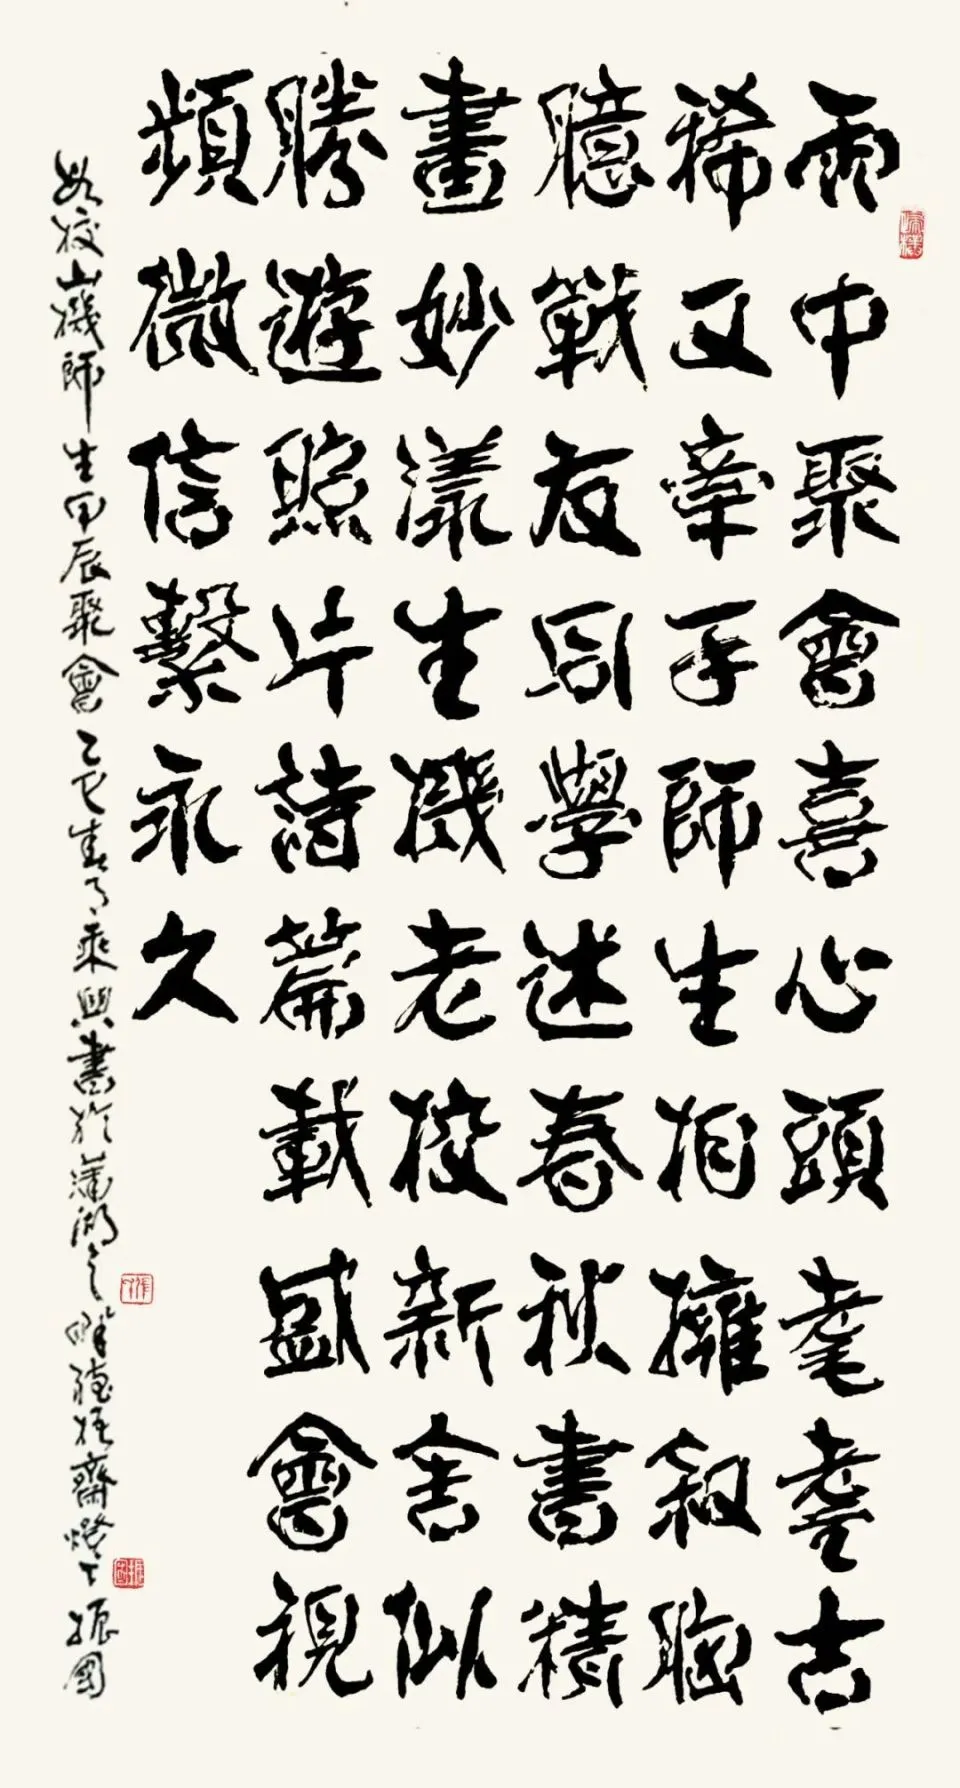 雨中聚會喜心頭耄耋古
稀又牽手師生相擁叙胸
臆戰友同學述春秋書精
畫妙漾生機老校新舍似
勝遊照片詩篇載盛會視
頻微信繫永久
校山機師生甲辰聚會乙巳春乘興書於蒲湖之齋燈下振國